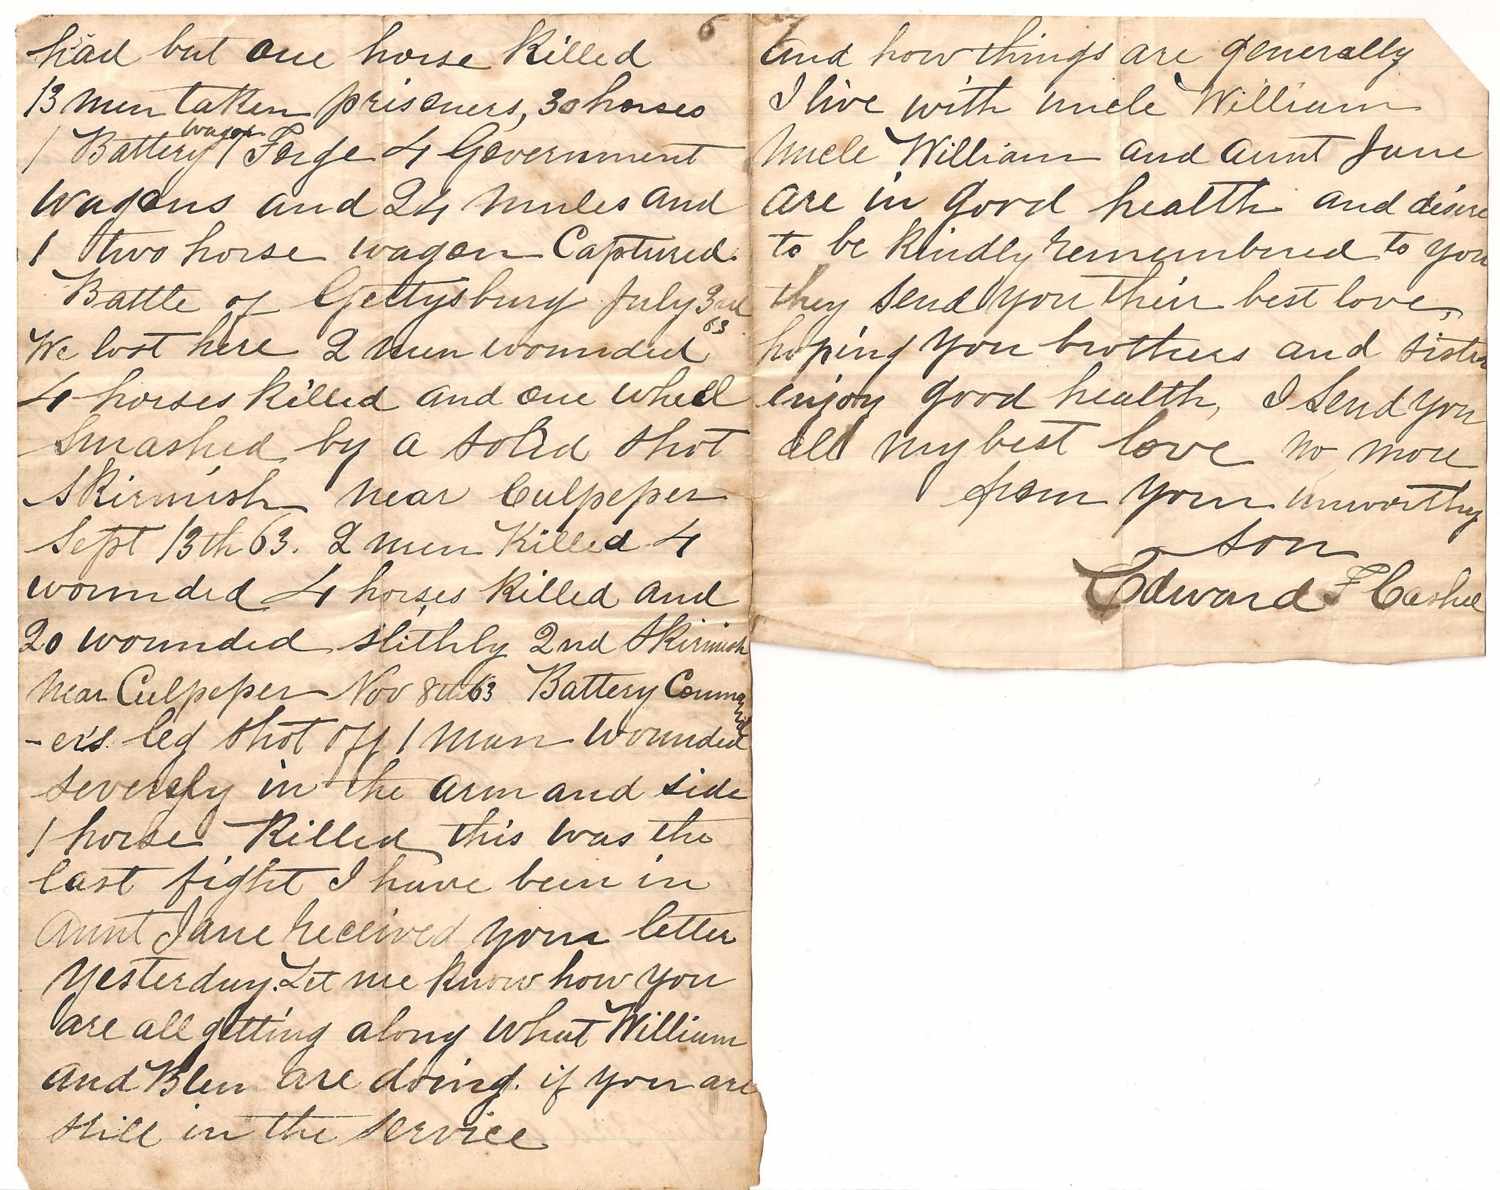 5
had but one horse killed
13 men taken prisoners, 30 horses
1 Battery wagon 1 Forge 4 Government
wagons and 24 mules and
1 two horse wagon Captured.
Battle of Gettysburg July 3rd
63
We lost here 2 men wounded
4 horses killed and one wheel
smashed by a solid shot
skirmish near Culpeper
Sept 13th 63. 2 men killed 4
wounded 4 horses killed and
20 wounded slithly 2nd skirmish
near Culpeper Nov 8th 63 Battery Command
-er's leg shot off 1 man wounded
severely in the arm and side
1 horse killed this was the
last fight I have been in
Aunt Jane received your letter
yesterday. Let me know how you
are all getting along what William
and Blen are doing. if you are
still in the service
6
and how things are generally
I live with uncle William
Uncle William and aunt Jane
are in good health and desire
to be kindly remembered to you
they send you their best love,
hoping you brothers and sisters
enjoy good health, I send you
all my best love no more
from your unworthy
son
Edward F Cashel